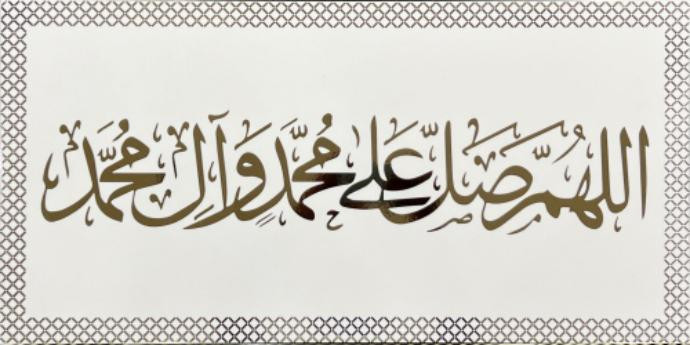 اللهُمَّ صَلِّ عَلى مُحمَّدٍ وَآلِ مُحمَّد